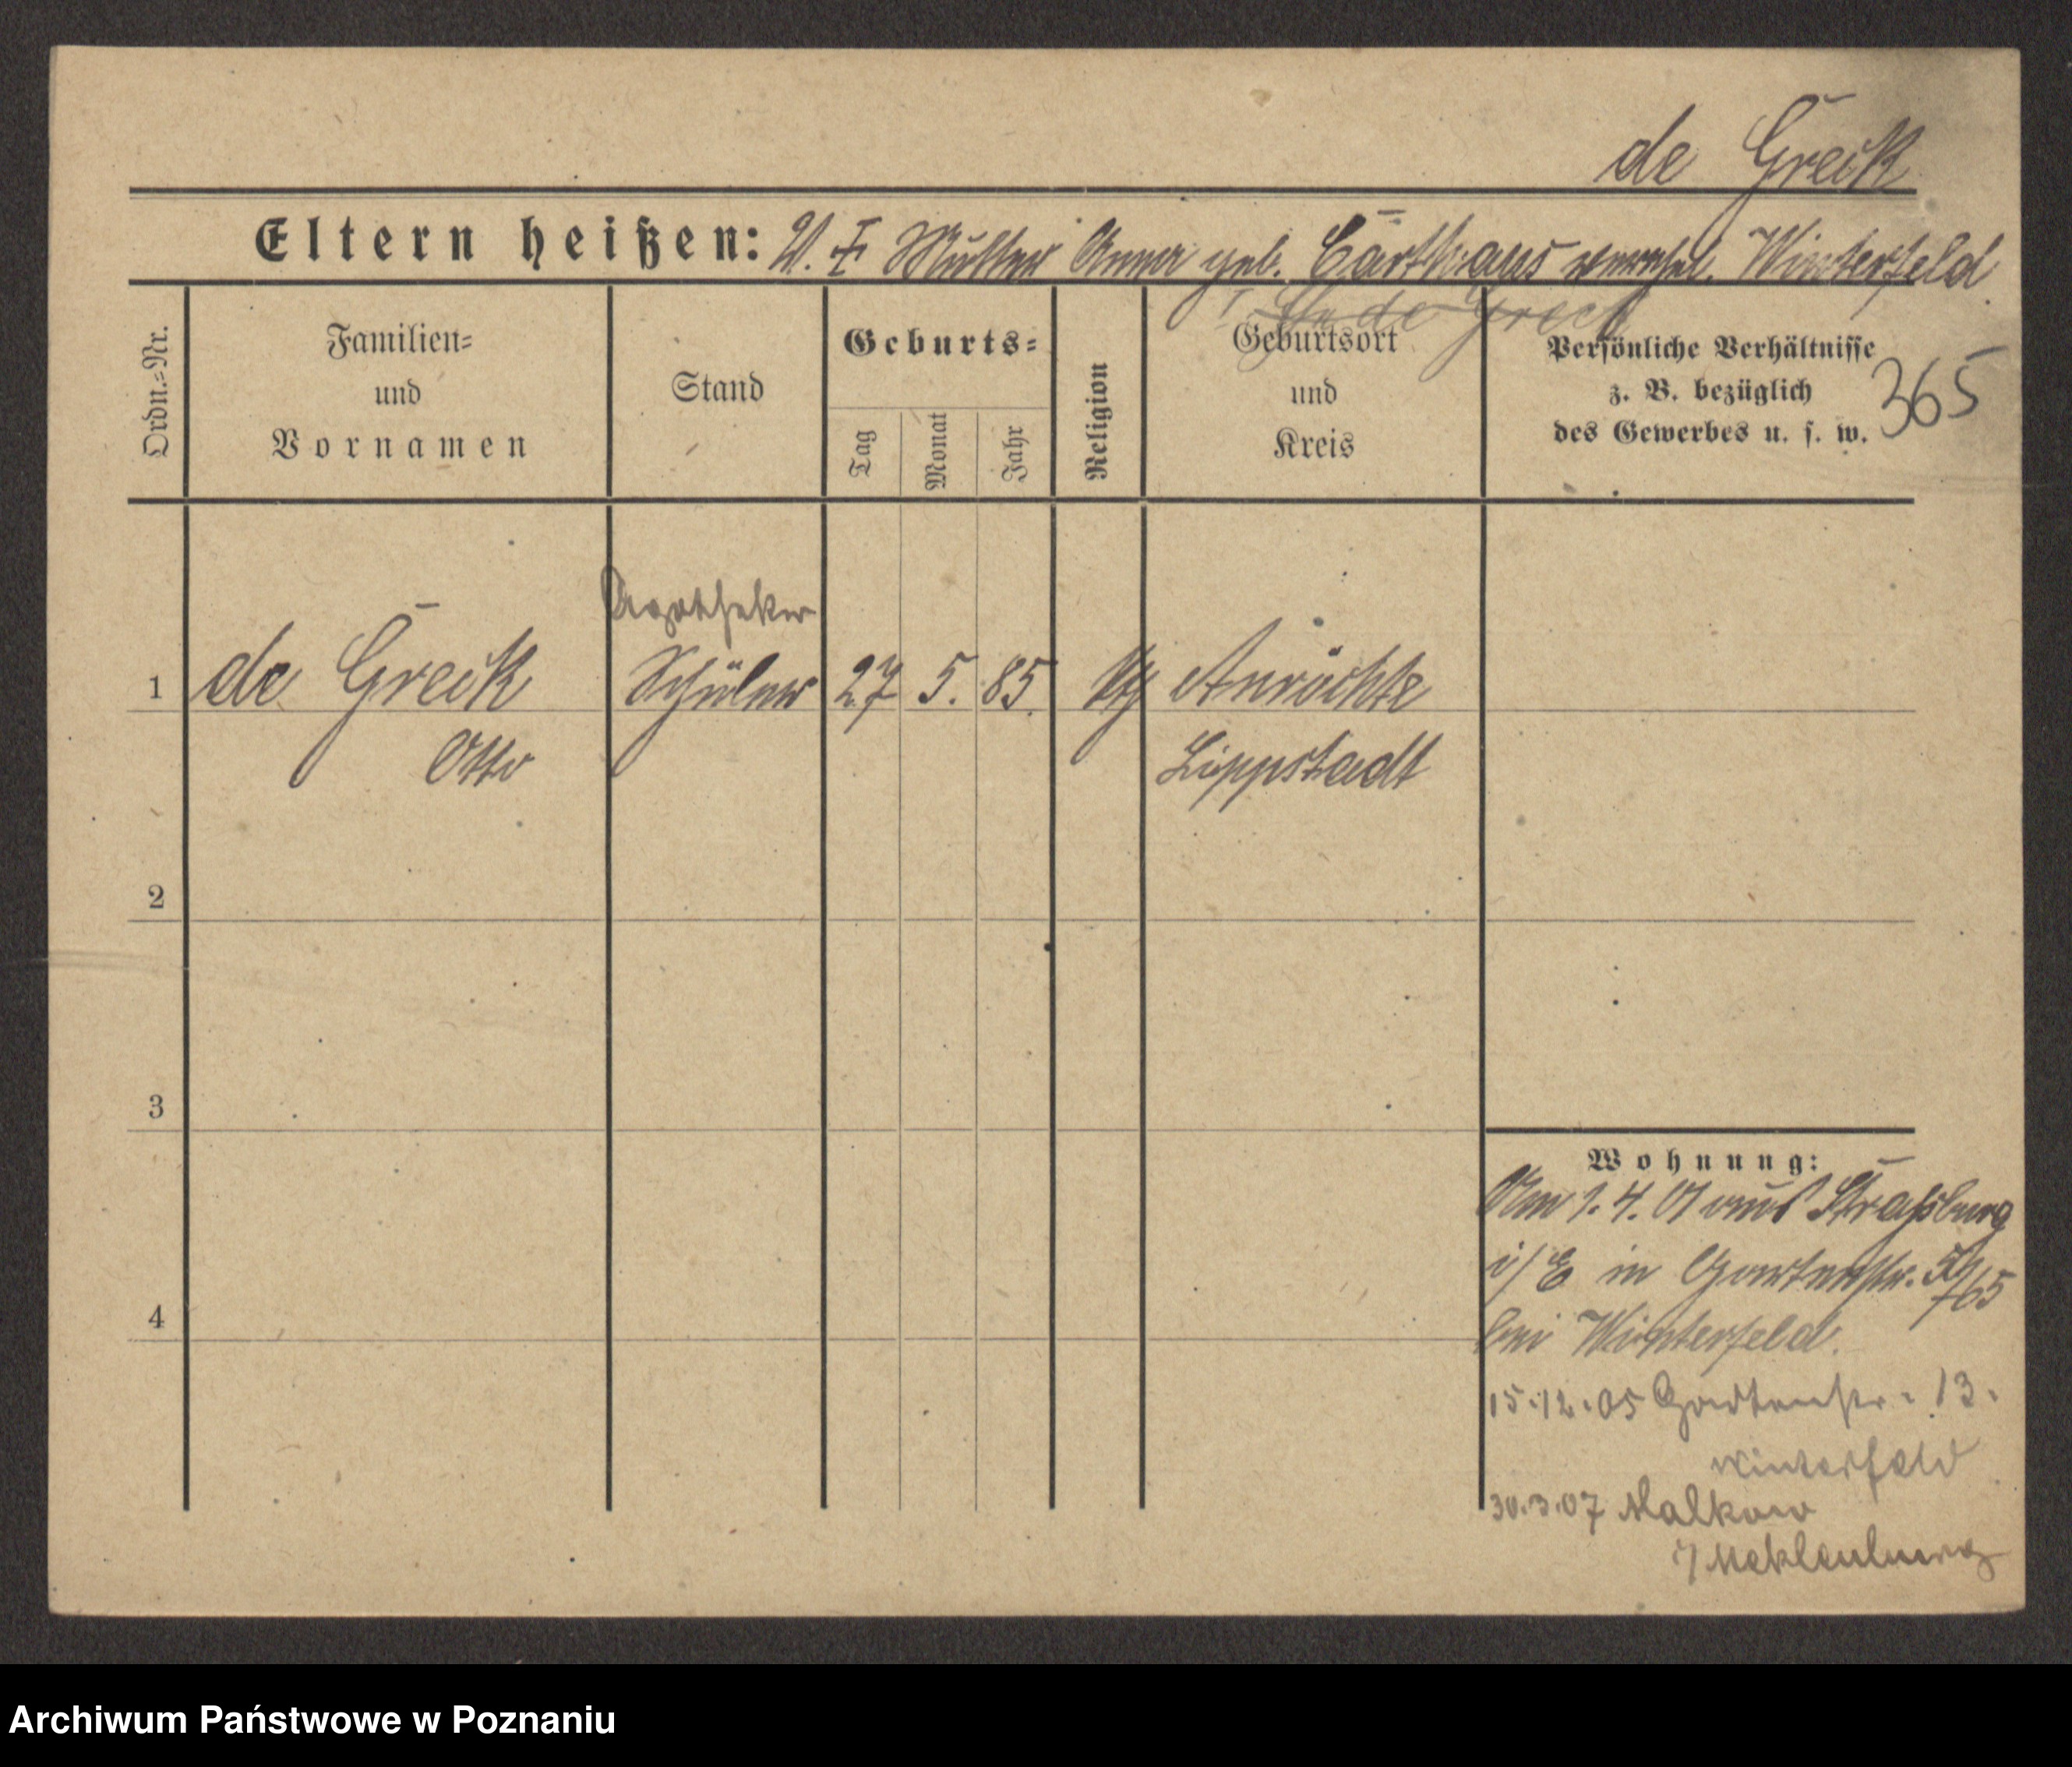 de Greck
Eltern heißen: V. † Mutter Anna geb. Carthaus verwfal. Winterfeld
de Greck
Ordn.=Nr.
Familien=
und
Vornamen
Stand
Geburts=
Tag
Monat
Jahr
Religion
Geburtsort
und
Kreis
Persönliche Verhältnisse
z. B. bezüglich
des Gewerbes u. s. w.
365
Apotheker
1 de Greck Schüler 27 5. 85. Anröchte
Otto Lippstadt
2
3
4
Wohnung:
Am 1.4.01 aus Straßburg
i/E in Gartenstr.
bei Winterfeld.
15.12.05 Gartenstr. 13.
Winterfeld
30.3.07 Malkow
i/Meklenburg
Archiwum Państwowe w Poznaniu